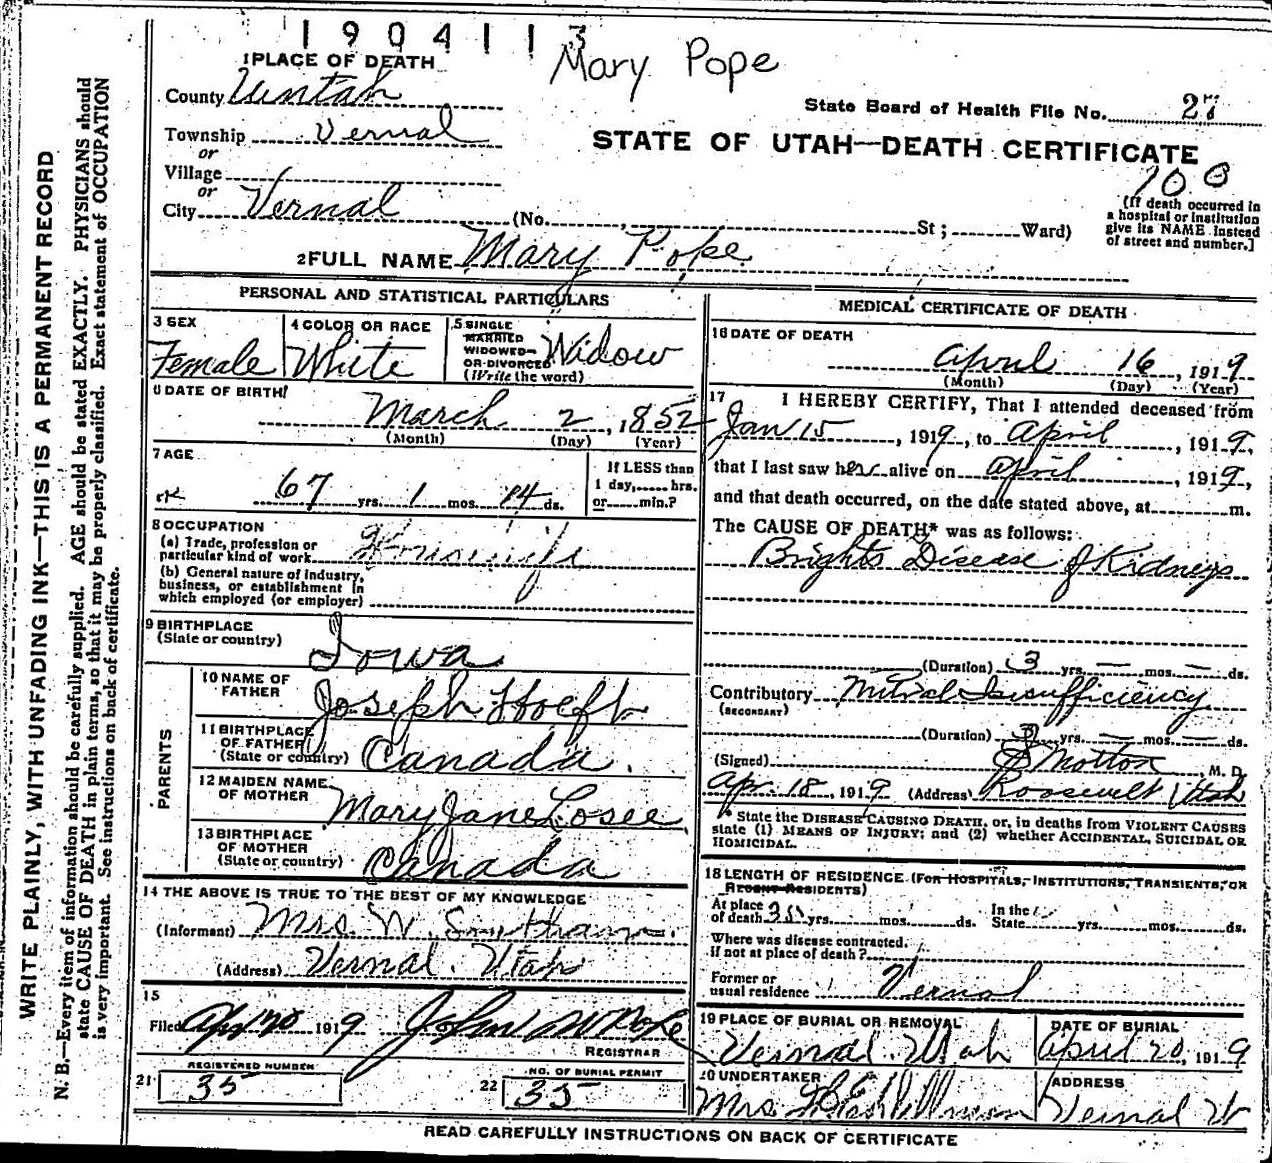 1904113
Mary Pope
1 PLACE OF DEATH
County Uintah
State Board of Health File No. 27
Township Vernal
STATE OF UTAH—DEATH CERTIFICATE
or
Village
or
City Vernal (No. St; Ward)
(If death occurred in
a hospital or institution
give its NAME instead
of street and number.]
2 FULL NAME Mary Pope
PERSONAL AND STATISTICAL PARTICULARS
3 SEX
Female
4 COLOR OR RACE
White
5 SINGLE
MARRIED
WIDOWED
OR DIVORCED
(Write the word)
Widow
6 DATE OF BIRTH
March 2, 1852
(Month) (Day) (Year)
7 AGE
67 yrs. 1 mos. 14 ds.
If LESS than
1 day, hrs.
or min.?
8 OCCUPATION
(a) Trade, profession or
particular kind of work Housewife
(b) General nature of industry,
business, or establishment in
which employed (or employer)
9 BIRTHPLACE
(State or country) Iowa
PARENTS
10 NAME OF
FATHER Joseph
11 BIRTHPLACE
OF FATHER
(State or country) Canada.
12 MAIDEN NAME
OF MOTHER Mary Jane Losee
13 BIRTHPLACE
OF MOTHER
(State or country) Canada
14 THE ABOVE IS TRUE TO THE BEST OF MY KNOWLEDGE
(Informant) Mrs. W.
(Address) Vernal. Utah
15
Filed Apr 20 1919 John W Pope
REGISTRAR
REGISTERED NUMBER
21 35
NO. OF BURIAL PERMIT
22 35
MEDICAL CERTIFICATE OF DEATH
16 DATE OF DEATH
April 16, 1919
(Month) (Day) (Year)
17 I HEREBY CERTIFY, That I attended deceased from
Jan 15, 1919, to April, 1919,
that I last saw her alive on April, 1919,
and that death occurred, on the date stated above, at m.
The CAUSE OF DEATH* was as follows:
Brights Disease of Kidneys
(Duration) 3 yrs. — mos. — ds.
Contributory Mitral Insufficiency
(SECONDARY)
(Duration) 3 yrs. — mos. — ds.
(Signed) Motton, M. D.
Apr. 18, 1919 (Address) Roosevelt Utah
* State the DISEASE CAUSING DEATH, or, in deaths from VIOLENT CAUSES
state (1) MEANS OF INJURY; and (2) whether ACCIDENTAL, SUICIDAL OR
HOMICIDAL.
18 LENGTH OF RESIDENCE (FOR HOSPITALS, INSTITUTIONS, TRANSIENTS, OR
RECENT RESIDENTS)
At place
of death 35 yrs. mos. ds. In the
State yrs. mos. ds.
Where was disease contracted,
if not at place of death?
Former or
usual residence Vernal
19 PLACE OF BURIAL OR REMOVAL
Vernal. Utah
DATE OF BURIAL
April 20, 1919
20 UNDERTAKER
Mrs.
ADDRESS
Vernal Ut
READ CAREFULLY INSTRUCTIONS ON BACK OF CERTIFICATE
WRITE PLAINLY, WITH UNFADING INK—THIS IS A PERMANENT RECORD
N. B.—Every item of information should be carefully supplied. AGE should be stated EXACTLY. PHYSICIANS should
state CAUSE OF DEATH in plain terms, so that it may be properly classified. Exact statement of OCCUPATION
is very important. See instructions on back of certificate.